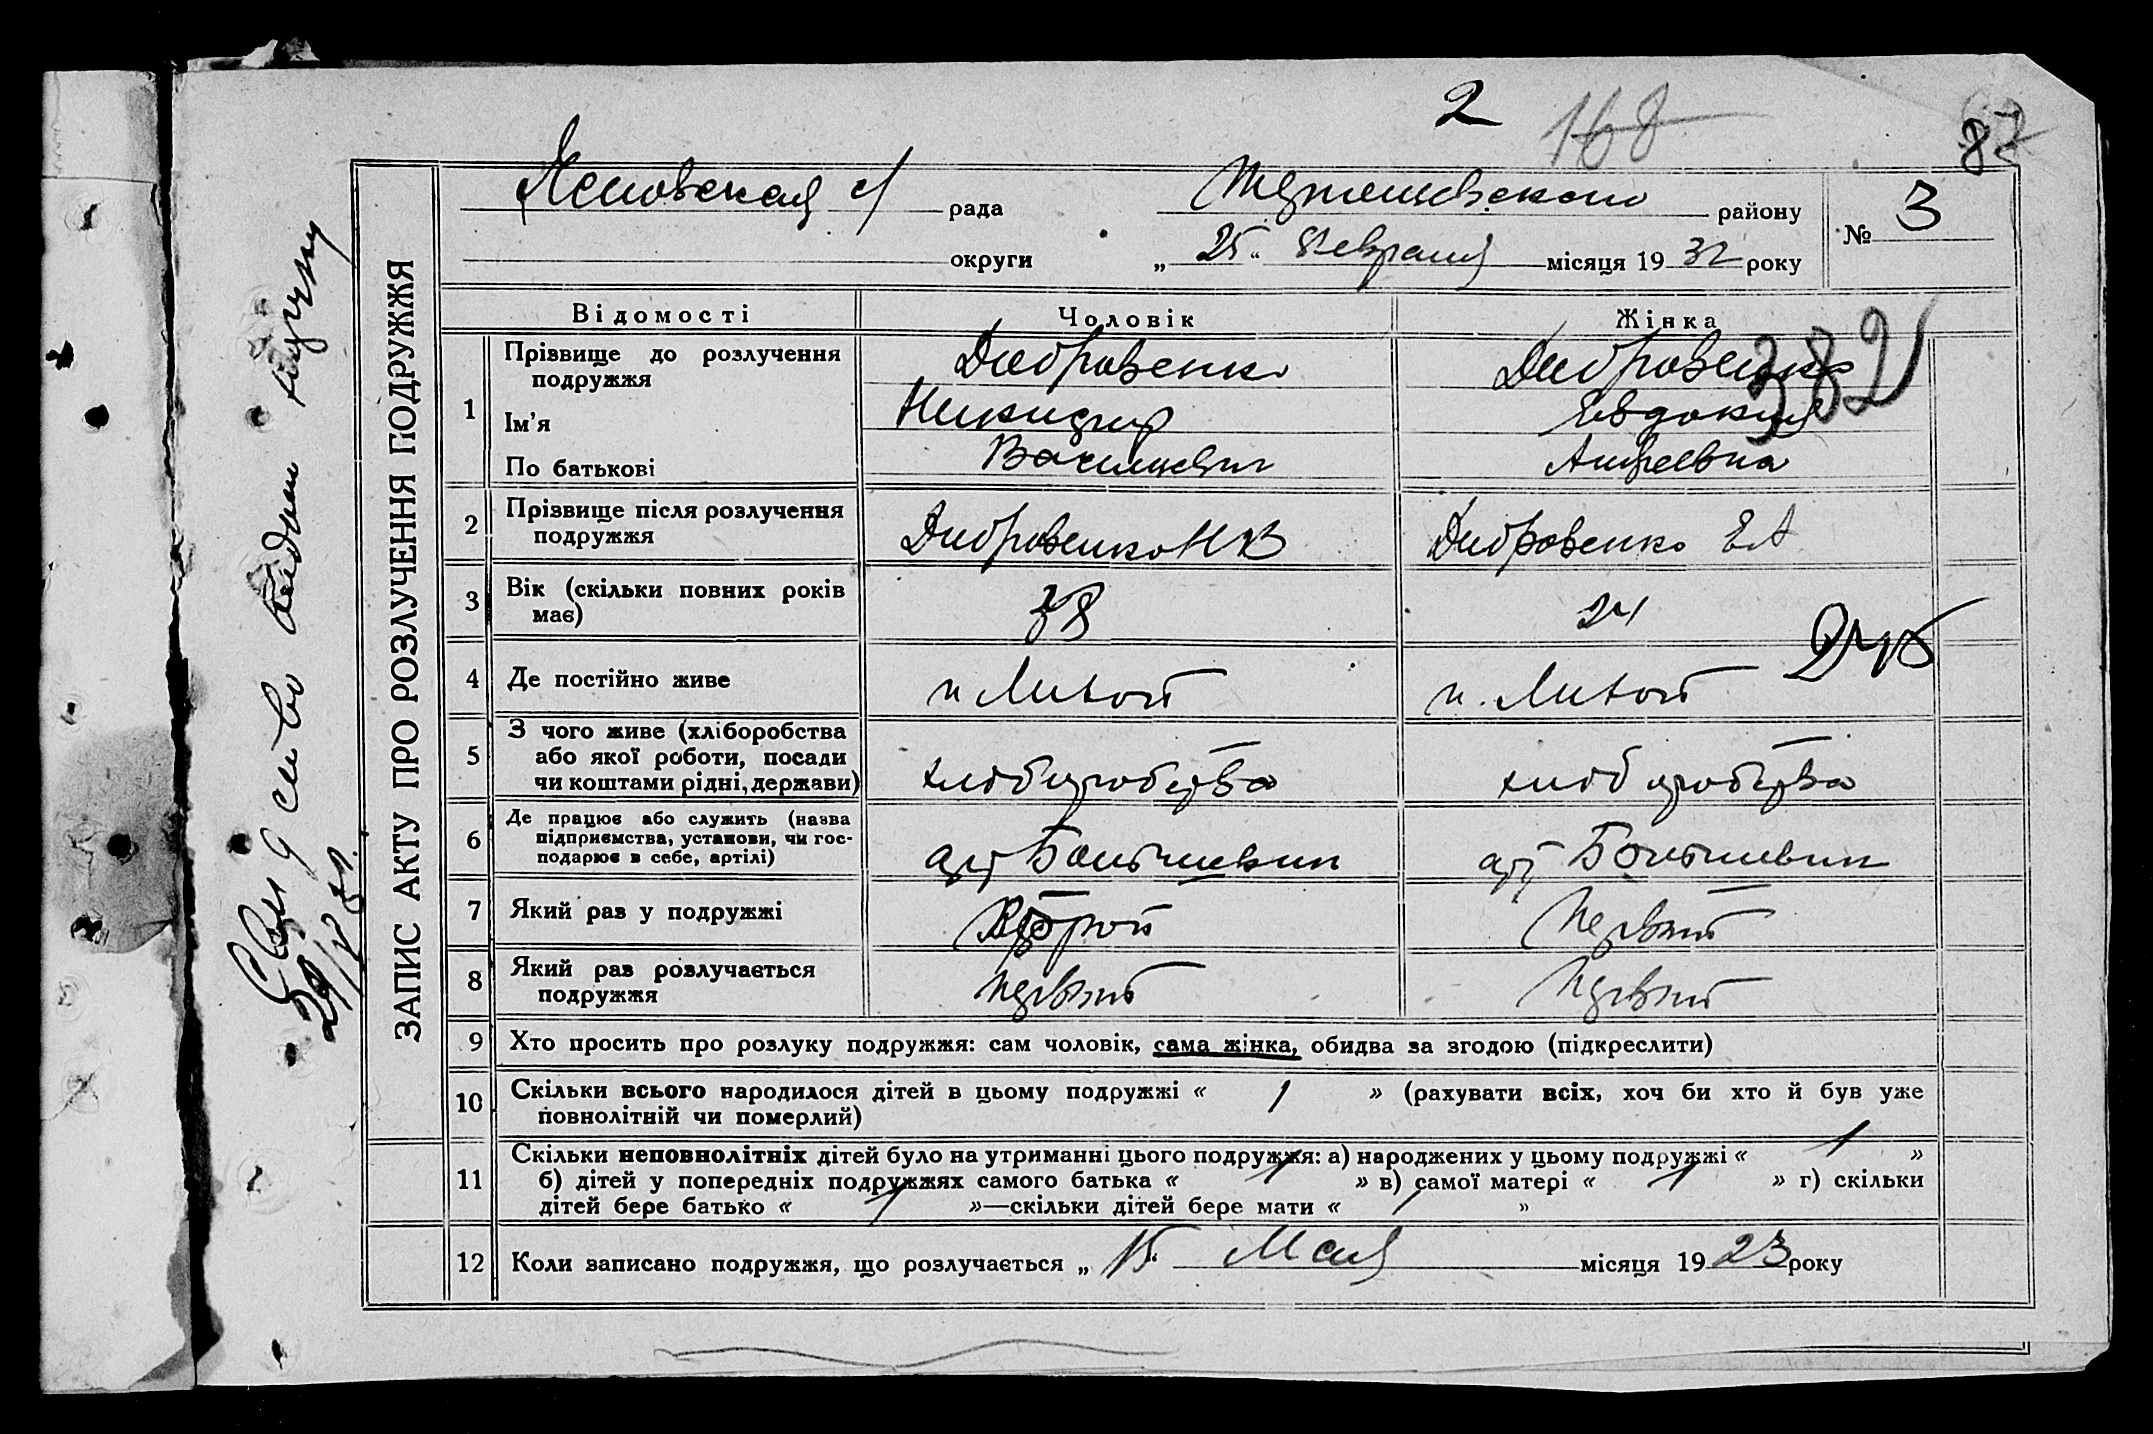 2 168 87
рада
району
№ 3
округи
„ 25 “ Февраля місяця 1932 року
ЗАПИС АКТУ ПРО РОЗЛУЧЕННЯ ПОДРУЖЖЯ
Відомості Чоловік Жінка
382
1 Прізвище до розлучення подружжя Дибровенко Дибровенко
Ім’я Никифор Евдокия
По батькові Васильевич Андреевна
2 Прізвище після розлучення Дибровенко Н В Дибровенко Е А
подружжя
3 Вік (скільки повних років 38 24
має)
4 Де постійно живе
5 З чого живе (хліборобства
або якої роботи, посади
чи коштами рідні, держави) хліборобства хліборобства
6 Де працює або служить (назва
підприємства, установи, чи гос-
подарює в себе, артілі) арт Большевик арт Большевик
7 Який раз у подружжі Второй Первый
8 Який раз розлучається Первый Первый
подружжя
9 Хто просить про розлуку подружжя: сам чоловік, сама жінка, обидва за згодою (підкреслити)
10 Скільки всього народилося дітей в цьому подружжі « 1 » (рахувати всіх, хоч би хто й був уже
повнолітній чи померлий)
11 Скільки неповнолітніх дітей було на утриманні цього подружжя: а) народжених у цьому подружжі « 1 »
б) дітей у попередніх подружжях самого батька « 1 » в) самої матері « 1 » г) скільки
дітей бере батько « 1 »—скільки дітей бере мати « 1 »
12 Коли записано подружжя, що розлучається „ 15 “ Мая місяця 1923 року